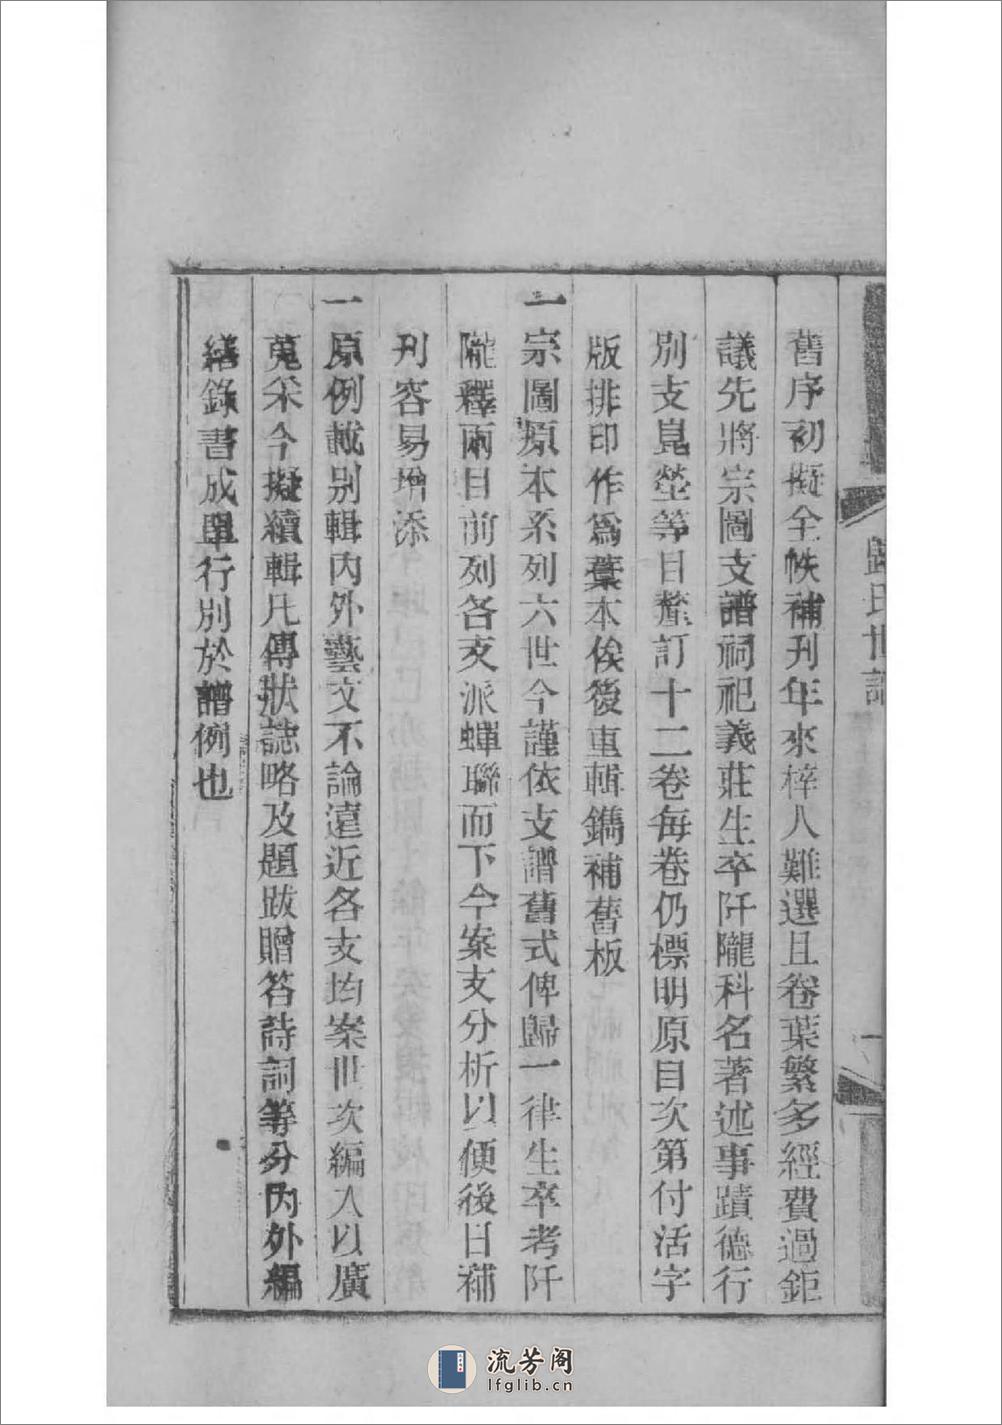 歸氏世譜
一
舊序初擬全帙補刊年來梓人難選且卷葉繁多經費過鉅
議先將宗圖支譜祠祀義莊生卒阡隴科名著述事蹟德行
別支崑塋等目釐訂十二卷每卷仍標明原目次第付活字
版排印作爲藁本俟後重輯鐫補舊板
一宗圖原本系列六世今謹依支譜舊式俾歸一律生卒考阡
隴釋兩目前列各支派蟬聯而下今案支分析以便後日補
刊容易增添
一原例載別輯內外藝文不論遠近各支均案世次編入以廣
蒐采今擬續輯凡傳狀誌略及題跋贈答詩詞等分內外編
繕錄書成單行別於譜例也
流芳阁
lfglib.cn